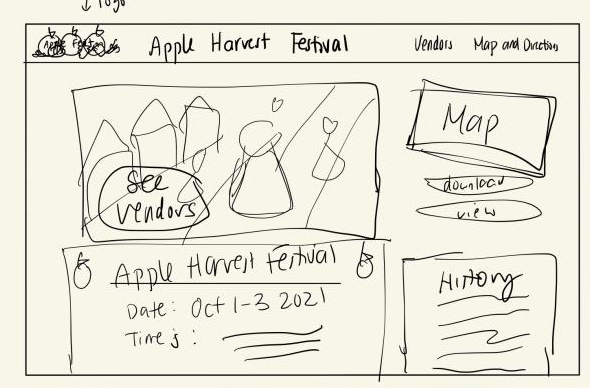 ↓ logo
Apple Harvest Festival
Vendors Map and Direction
Map
See
vendors
download
view
Apple Harvest Festival
Date: Oct 1-3 2021
Times:
History